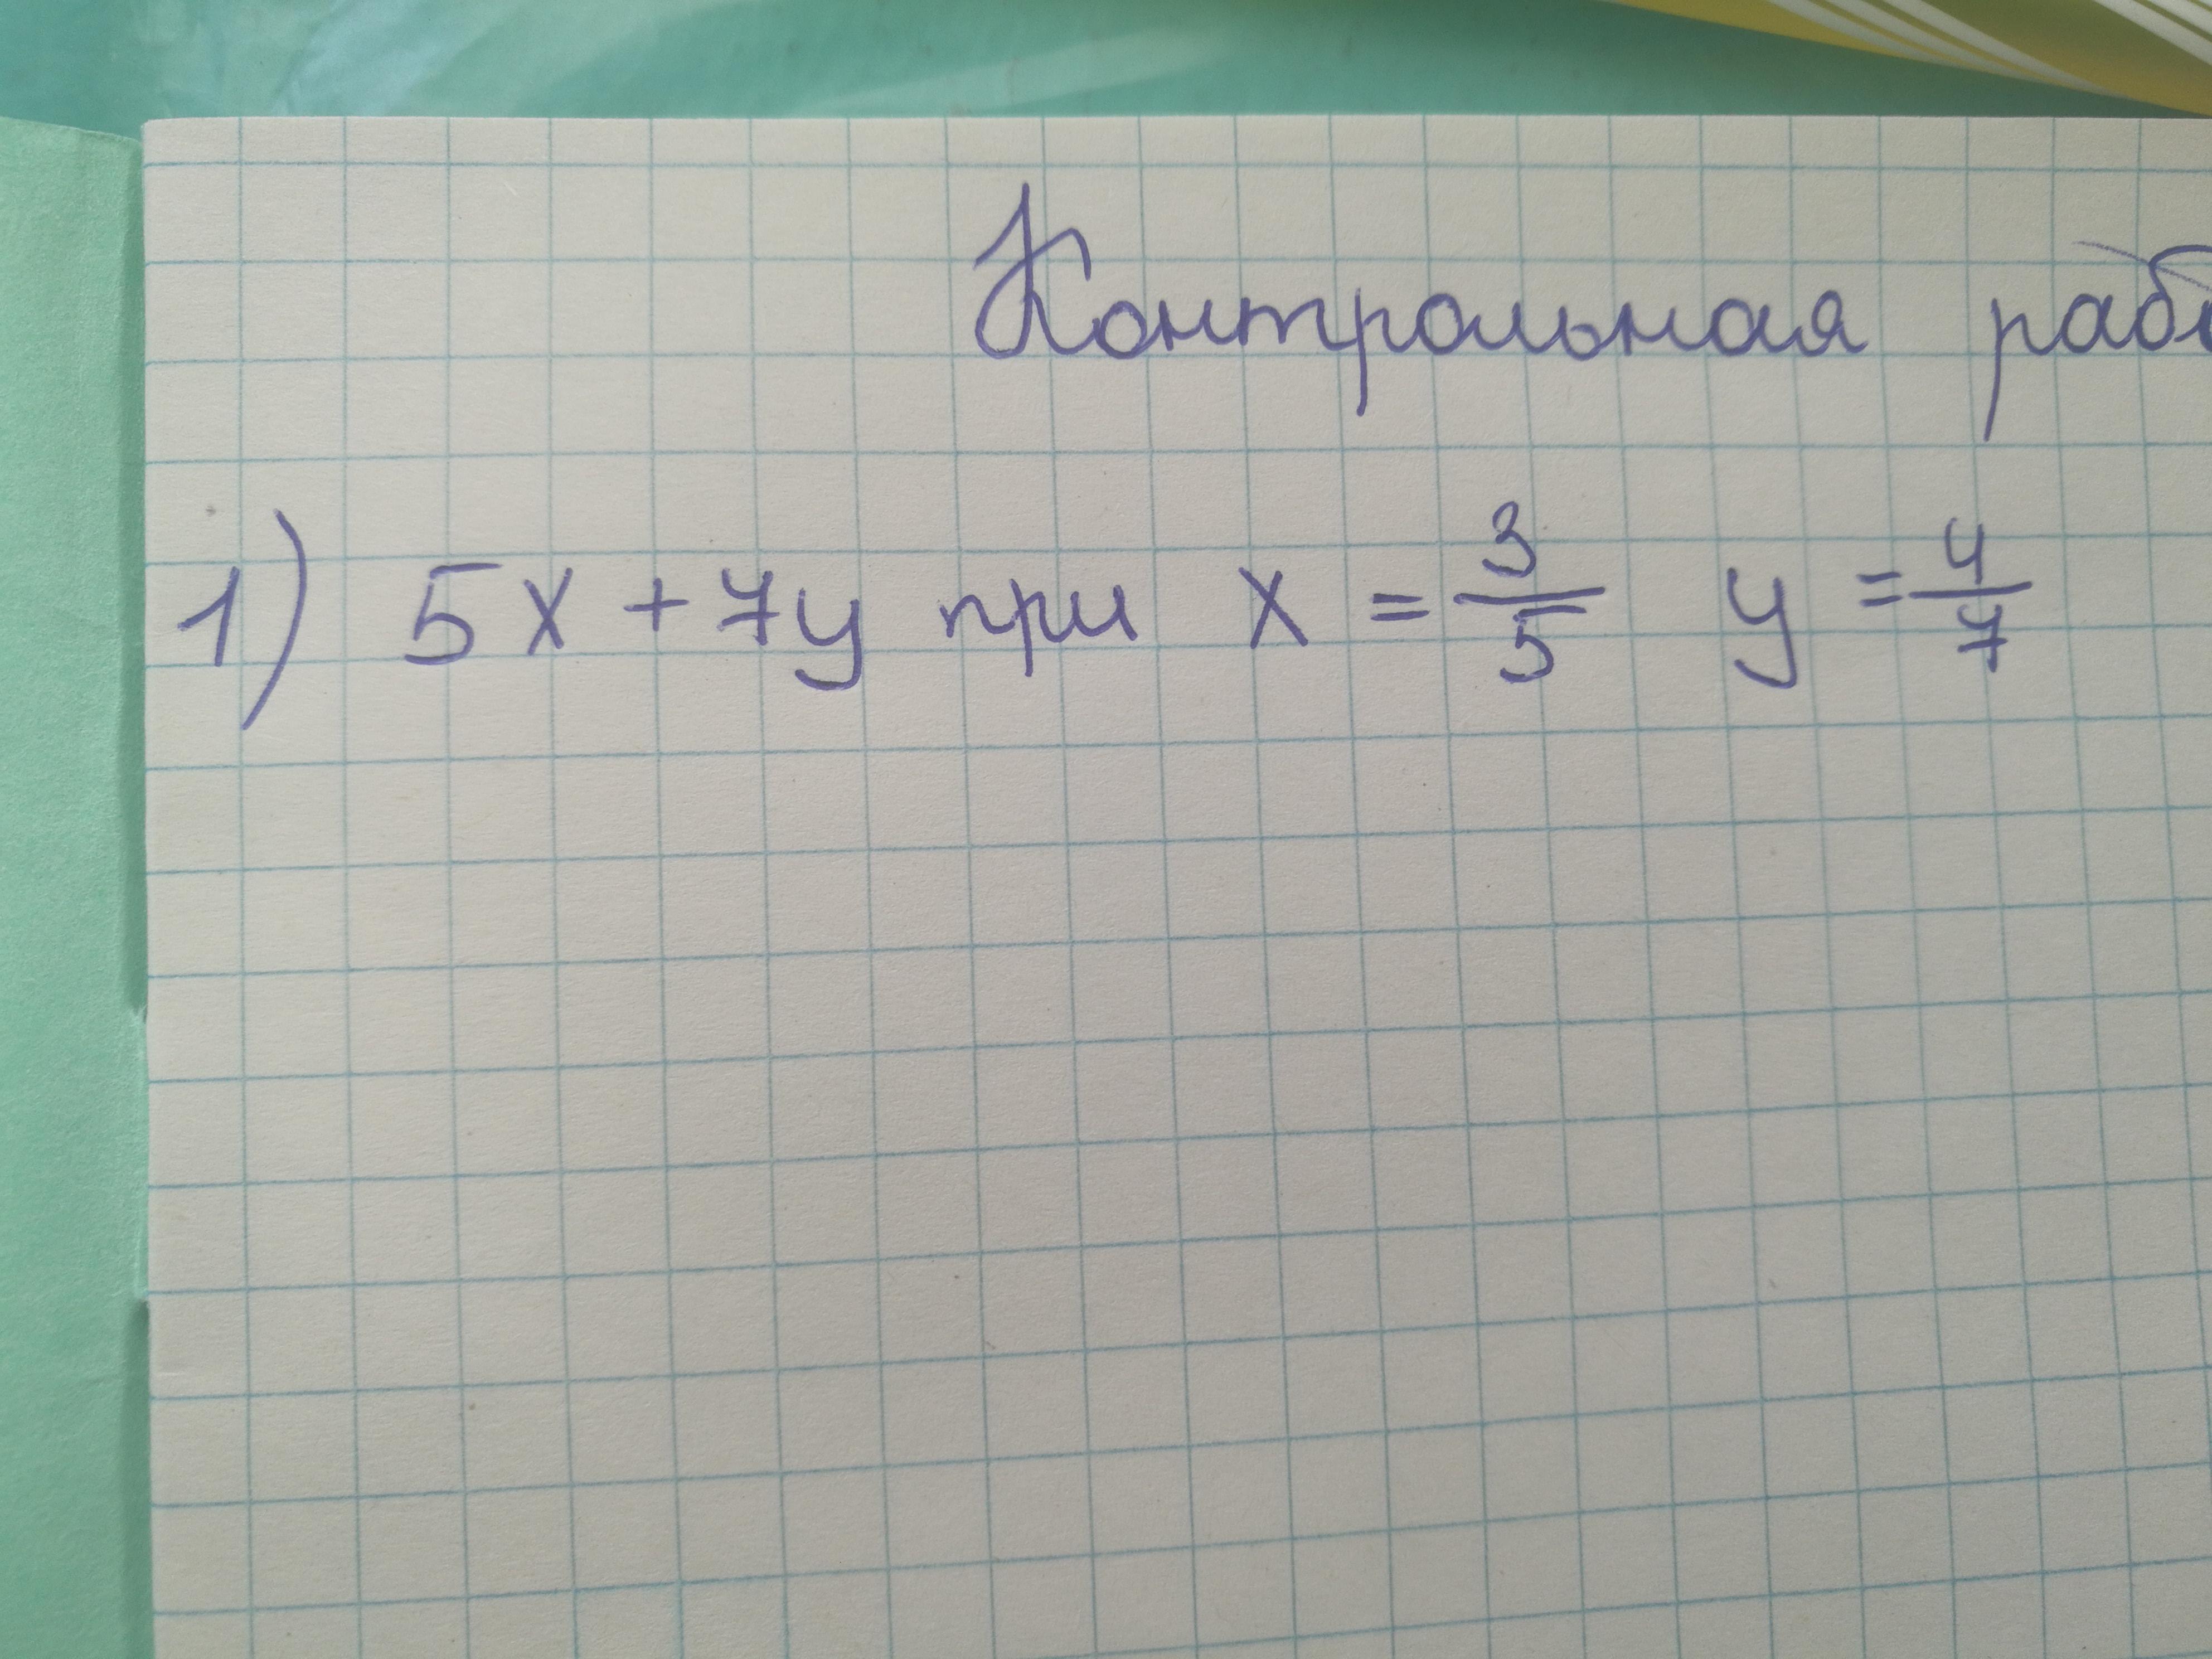 Контрольная
1) 5x + 7y при x = 3/5 y = 4/7